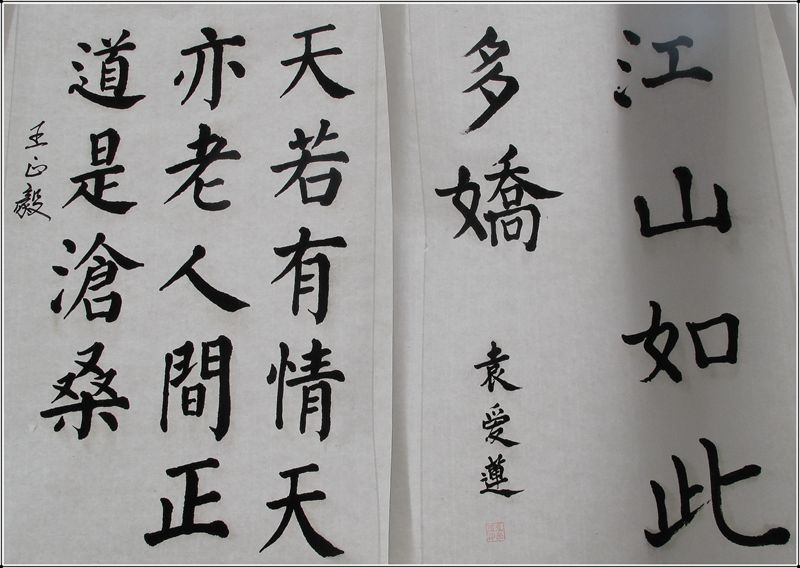 江山如此
多嬌
袁愛蓮
天若有情天
亦老人間正
道是滄桑
王正毅